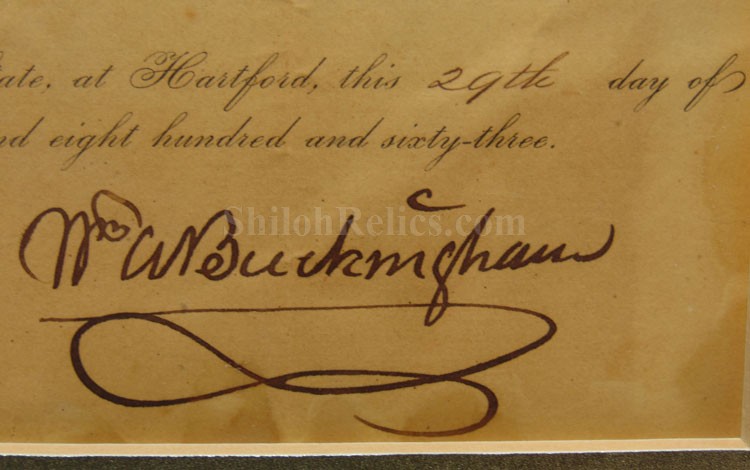 tate, at Hartford, this 29th day of
nd eight hundred and sixty-three.
ShilohRelics.com
Wm A Buckingham